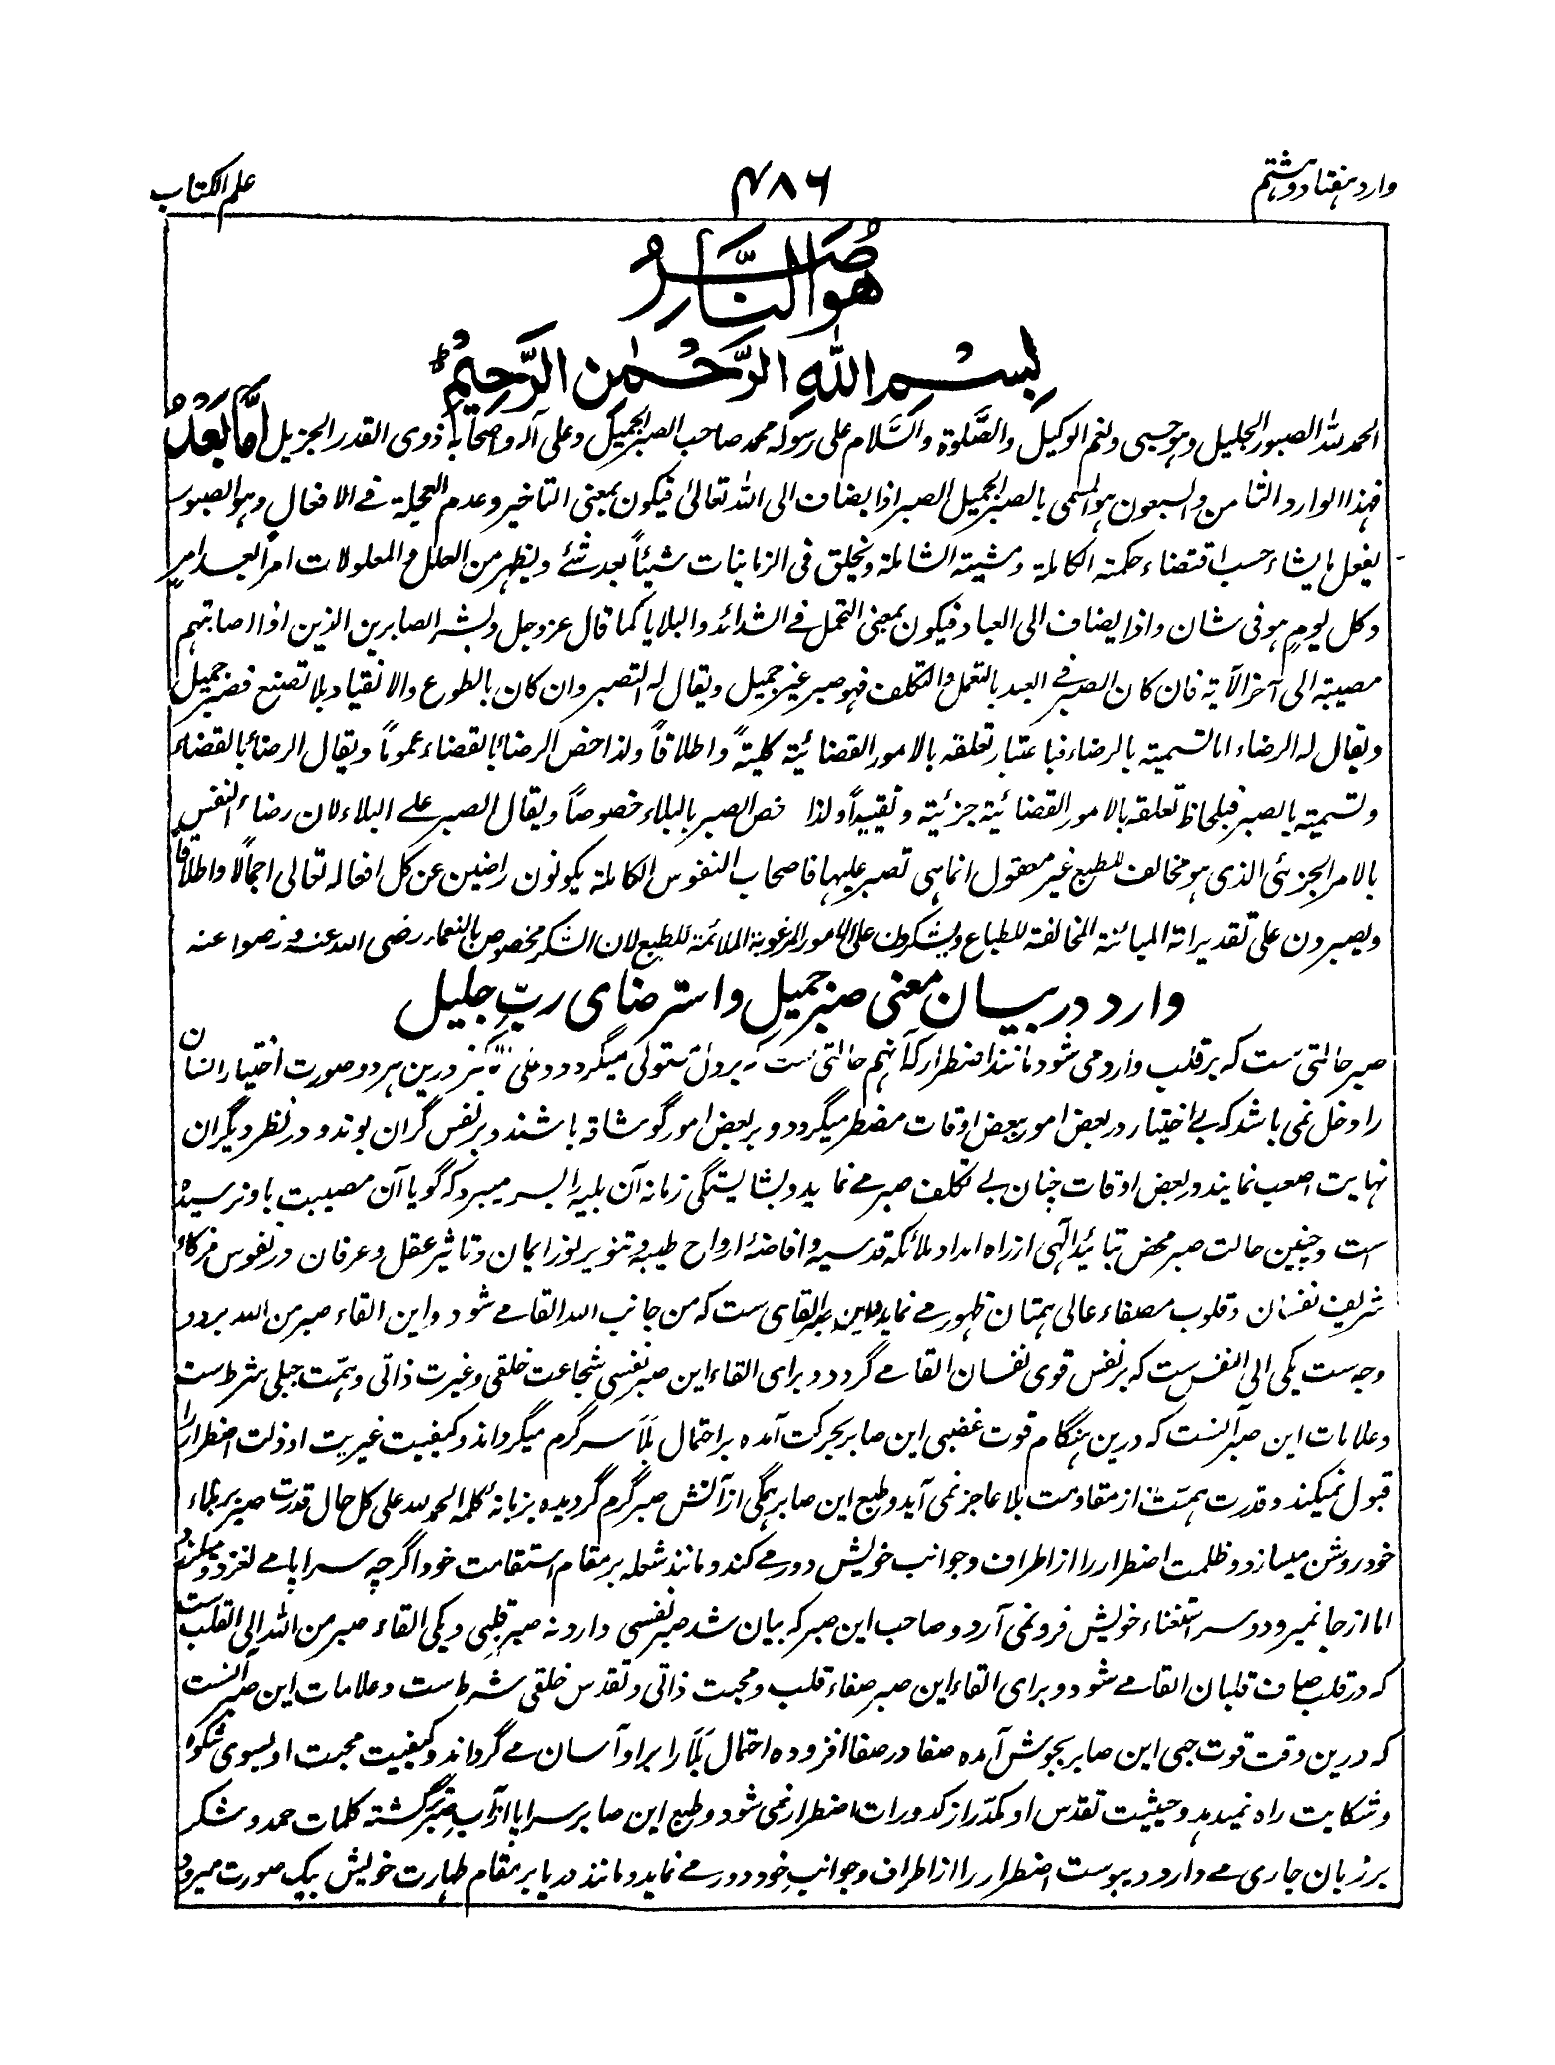 وارد ہفتاد و ہشتم
۴۸۶
علم الکتاب
هو الناصر
بِسْمِ اللهِ الرَّحْمٰنِ الرَّحِيْمِ
الحمد لله الصبور الجليل وهو حسبى ونعم الوكيل والصَّلوة والسَّلام على رسوله محمد صاحب الصبر الجميل وعلى آله واصحابه ذوى القدر الجزيل اَمَّا بَعْدُ
فهذا الوارد الثامن والسبعون هو المسمى بالصبر الجميل الصبر اذا يضاف الى الله تعالى فيكون بمعنى التاخير وعدم العجلة فى الافعال وهو الصبور
يفعل ما يشاء حسب اقتضاء حكمته الكاملة ومشيته الشاملة ويخلق فى الزمانيات شيئاً بعد شئ ويظهر من العلل والمعلولات امراً بعد امرٍ
وكل يومٍ هو فى شان واذا يضاف الى العباد فيكون بمعنى التحمل فى الشدائد والبلايا كما قال عز وجل وبشر الصابرين الذين اذا اصابتهم
مصيبة الى آخر الآية فان كان الصبر فى العبد بالتعمل والتكلف فهو صبر غير جميل ويقال له التصبر وان كان بالطوع والانقياد بلا تصنع فصبر جميل
ويقال له الرضاء اما تسميته بالرضاء فباعتبار تعلقه بالامور القضائية كليةً واطلاقاً ولذا خص الرضا بالقضاء عموماً ويقال الرضا بالقضاء
وتسميته بالصبر فبلحاظ تعلقه بالامور القضائية جزئية وتقييداً ولذا خص الصبر بالبلاء خصوصاً ويقال الصبر على البلاء لان رضاء النفس
بالامر الجزئى الذى هو مخالف للطبع غير معقول انما هى تصبر عليها فاصحاب النفوس الكاملة يكونون راضين عن كل افعاله تعالى اجمالا واطلاقاً
ويصبرون على تقديراته المبائنة المخالفة للطباع ويشكرون على الامور المرغوبة الملائمة للطبع لان الشكر مخصوص بالنعماء رضى الله عنه ورضوا عنه
وارد در بیان معنی صبر جمیل و استرضای ربِّ جلیل
صبر حالتی ست که بر قلب وارد می شود مانند اضطرار که آنهم حالتی ست که بر دل مستولی میگردد و درین هر دو صورت اختیار انسان
را دخل نمی باشد که بے اختیار در بعض امور ببعض اوقات مضطر میگردد و بر بعض امور گو شاقه باشند و بر نفس گران بوند و در نظر دیگران
نهایت اصعب نمایند در بعض اوقات چنان بے تکلف صبر مے نماید و بشایستگی زمانه آن بلیه را بسر میبرد که گویا آن مصیبت باو نرسیده
است و چنین حالت صبر محض بتائید الٓهی از راه امداد ملائکه قدسیه و افاضهٔ ارواح طیبه و تنویر نور ایمان و تاثیر عقل و عرفان در نفوس مزکاء
شریف نفسان و قلوب مصفاء عالی همتان ظهور مے نماید و این صبر القای ست که من جانب الله القا مے شود و این القاء صبر من الله بر دو
وجه ست یکی الی النفس ست که بر نفس قوی نفسان القا مے گردد و برای القاء این صبر نفسی شجاعت خلقی و غیرت ذاتی و همّت جبلی شرط ست
و علامات این صبر آنست که درین هنگام قوت غضبی این صابر بحرکت آمده بر احتمال بَلا سرگرم میگرداند و کیفیت غیریت او ذلت اضطرار را
قبول نمیکند و قدرت همتّش از مقاومت بلا عاجز نمی آید و طبع این صابر همگی از آتش صبر گرم گردیده بزبانه کلمه الحمد لله علی کل حال قدرت صبر بر بلاء
خود روشن میسازد و ظلمت اضطرار را از اطراف و جوانب خویش دور مے کند و مانند شعله بر مقام استقامت خود اگرچه سراپا مے لغزد
اما از جا نمیرود و سر استغناء خویش فرو نمی آرد و صاحب این صبر که بیان شد صبر نفسی دارد نه صبر قلبی و یکی القاء صبر من الله الی القلب ست
که در قلب صاف قلبان القا مے شود و برای القاء این صبر صفاء قلب و محبت ذاتی و تقدس خلقی شرط ست و علامات این صبر آنست
که درین وقت قوت حبی این صابر بجوش آمده صفا در صفا افزوده احتمال بَلا را بر او آسان مے گرداند و کیفیت محبت او بسوی شکوه
و شکایت راه نمیدهد و حیثیت تقدس او مکدّر از کدورات اضطرار نمی شود و طبع این صابر سراپا از آب صبر تر گشته کلمات حمد و شکر
بر زبان جاری مے دارد و یبوست اضطرار را از اطراف و جوانب خود دور مے نماید و مانند دریا بر مقام طهارت خویش بیک صورت میرود